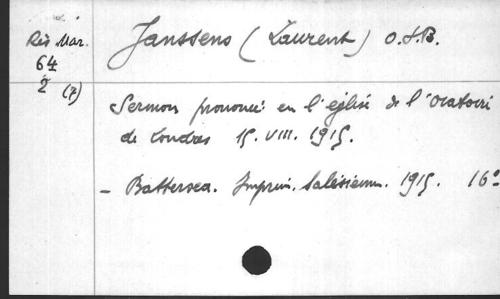 Rés Mar.
64
2 (7)
Janssens (Laurent) O.S.B.
Sermon prononcé en l'église de l'Oratoire
de Londres 15. VIII. 1915.
- Battersea. Imprim. Salésienn. 1915. 16°